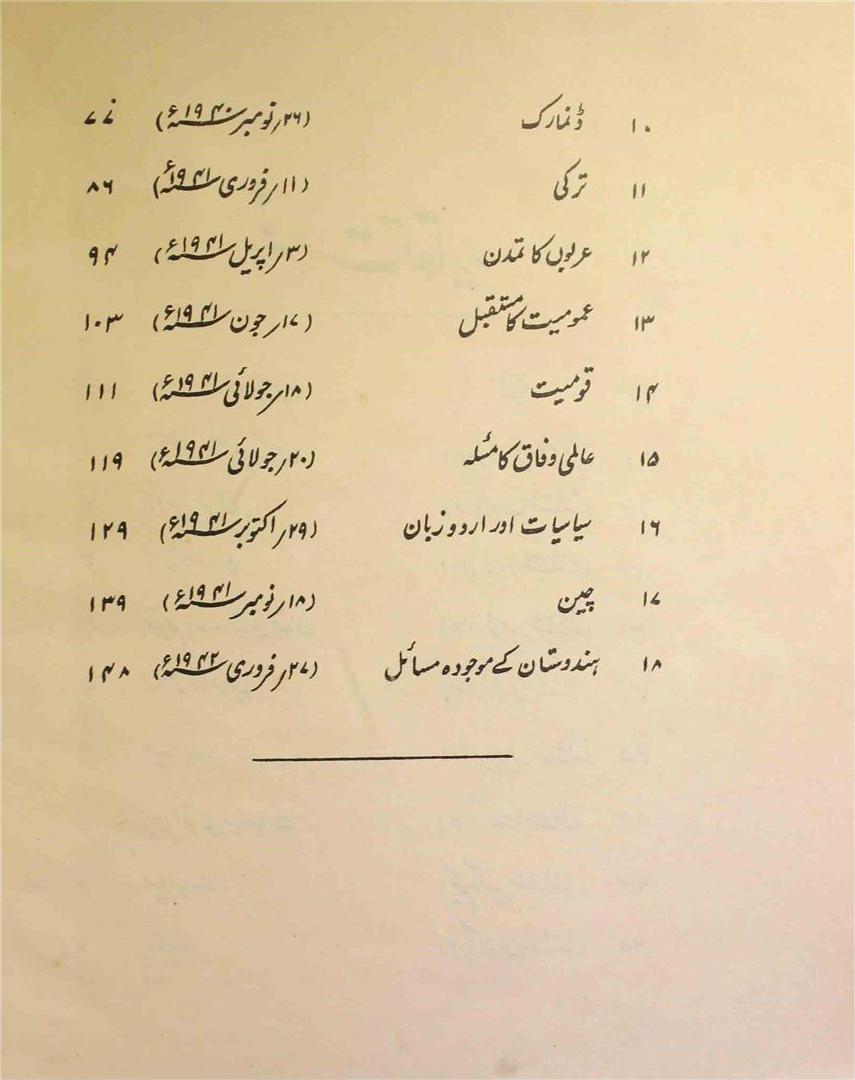 ۱۰ ڈنمارک (۲۶؍نومبر ۱۹۴۰ء) ۷۷
۱۱ ترکی (۱۱؍فروری ۱۹۴۱ء) ۸۶
۱۲ عربوں کا تمدن (۳؍اپریل ۱۹۴۱ء) ۹۴
۱۳ عمومیت کا مستقبل (۱۷؍جون ۱۹۴۱ء) ۱۰۳
۱۴ قومیت (۱۸؍جولائی ۱۹۴۱ء) ۱۱۱
۱۵ عالمی وفاق کا مسئلہ (۲۰؍جولائی ۱۹۴۱ء) ۱۱۹
۱۶ سیاسیات اور اردو زبان (۲۹؍اکتوبر ۱۹۴۱ء) ۱۲۹
۱۷ چین (۱۸؍نومبر ۱۹۴۱ء) ۱۳۹
۱۸ ہندوستان کے موجودہ مسائل (۲۷؍فروری ۱۹۴۲ء) ۱۴۸